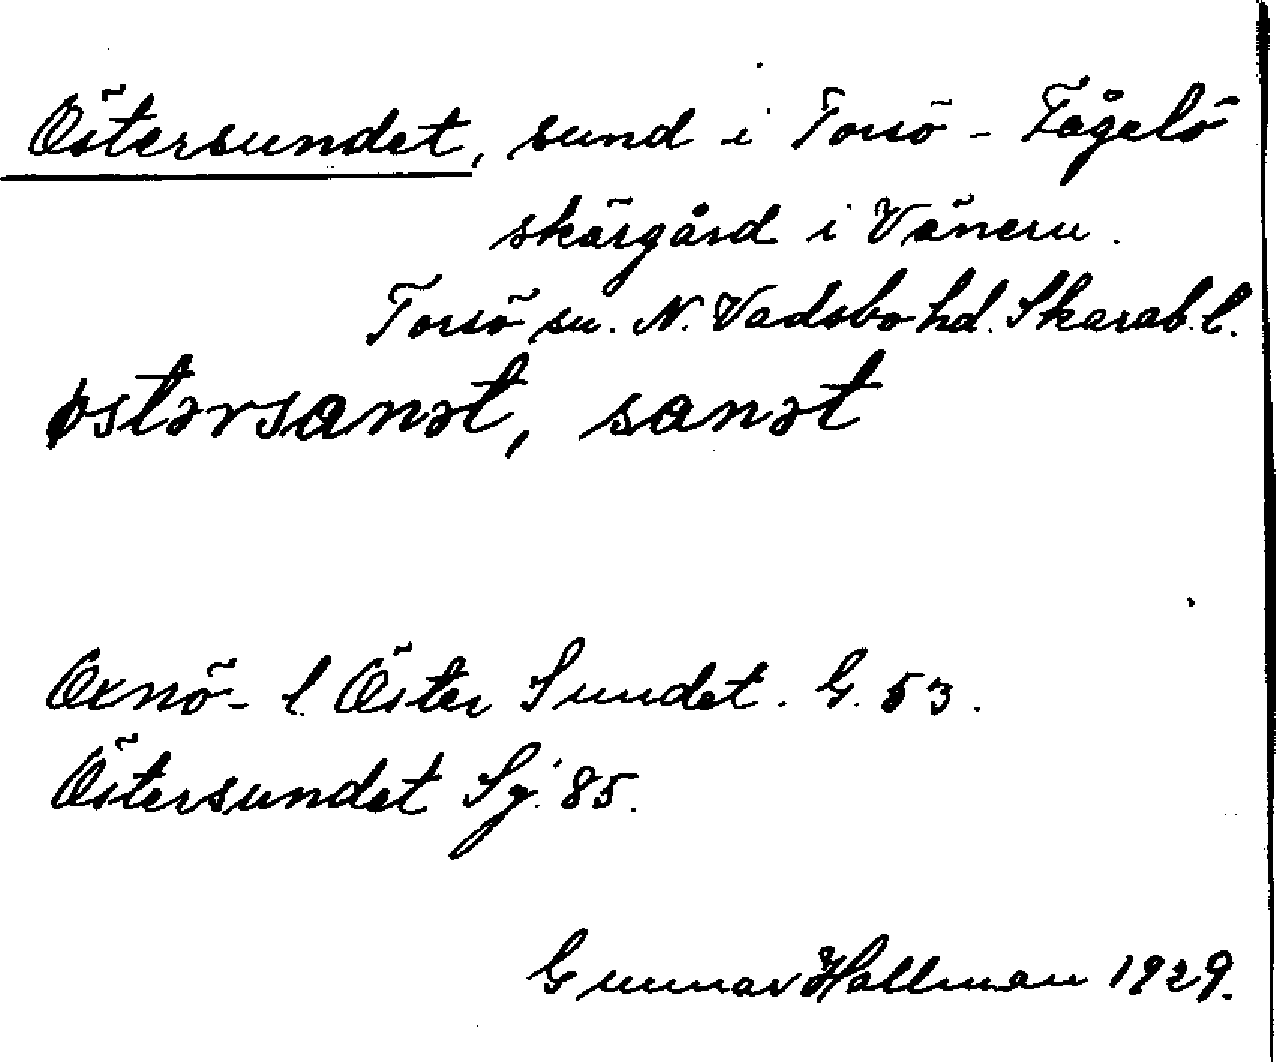 Östersundet, sund i Torsö - Fågelö
skärgård i Vänern.
Torsö sn. N. Vadsbo hd. Skarab. l.
østərsanət, sanət
Oxnö- l. Öster Sundet. G. 53.
Östersundet Sj. 85.
Gunnar Hallman 1929.